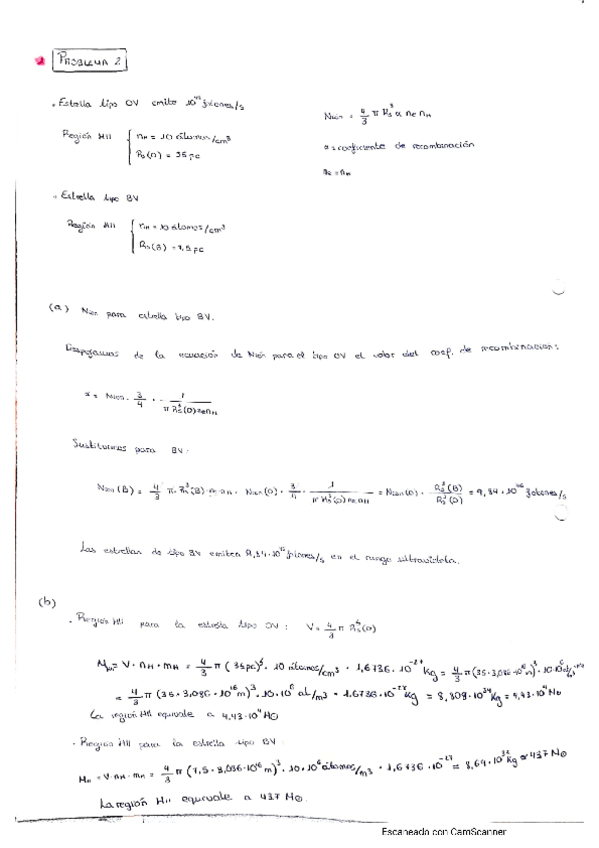 PROBLEMA 2
Estrella tipo OV emite 10⁴⁹ fotones/s
Región HII { nH = 10 átomos/cm³
Rs(O) = 35 pc
Nion = 4/3 π Rs³ α ne nH
α = coeficiente de recombinación
ne = nH
Estrella tipo BV
Región HII { nH = 10 átomos/cm³
Rs(B) = 7,5 pc
(a) Nion para estrella tipo BV.
Despejamos de la ecuación de Nion para el tipo OV el valor del coef. de recombinación:
α = Nion · 3/4 · 1/(π Rs³(O) ne nH)
Sustituimos para BV:
Nion(B) = 4/3 π · Rs³(B) ne nH · Nion(O) · 3/4 · 1/(π Rs³(O) ne nH) = Nion(O) · Rs³(B)/Rs³(O) = 9,84 · 10⁴⁶ fotones/s
Las estrellas de tipo BV emiten 9,84·10⁴⁶ fotones/s en el rango ultravioleta.
(b)
Región HII para la estrella tipo OV: V = 4/3 π Rs³(O)
= V · nH · mH = 4/3 π (35pc)³ · 10 átomos/cm³ · 1,6736 · 10⁻²⁷ kg = 4/3 π (35 · 3,086 · 10¹⁶ m)³ · 10·10⁶
= 4/3 π (35 · 3,086 · 10¹⁶ m)³ · 10 · 10⁶ at/m³ · 1.6736 · 10⁻²⁷ kg = 8,809 · 10³⁴ kg = 4,43 · 10⁴ M⊙
La región HII equivale a 4.43·10⁴ M⊙
Región HII para la estrella tipo BV:
= V · nH · mH = 4/3 π (7,5 · 3,086·10¹⁶ m)³ · 10·10⁶ átomos/m³ · 1,6736 · 10⁻²⁷ = 8,64 · 10³² kg ≈ 437 M⊙
La región HII equivale a 437 M⊙.
Escaneado con CamScanner